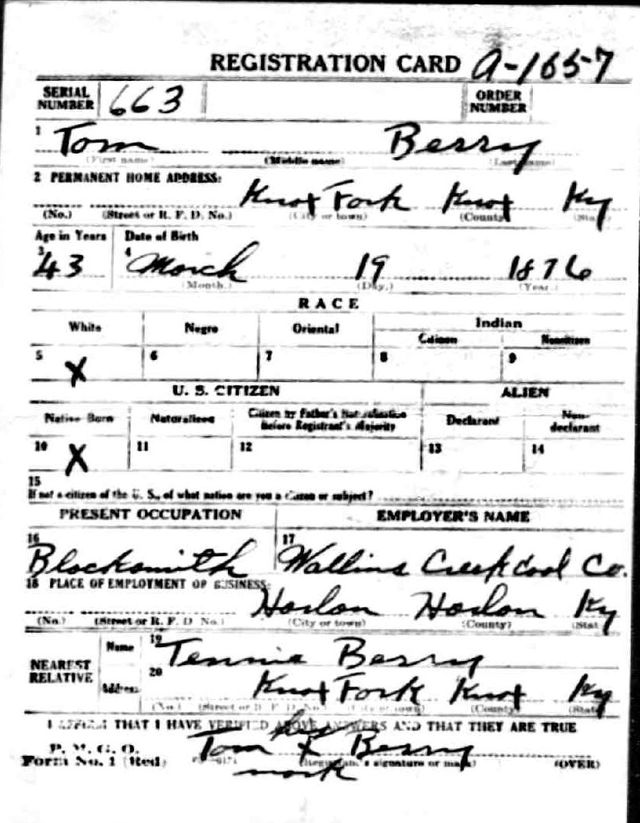 REGISTRATION CARD A-1657
SERIAL NUMBER 663 ORDER NUMBER
1 Tom Berry
(First name) (Middle name) (Last name)
2 PERMANENT HOME ADDRESS:
Knox Fork Knox Ky
(No.) (Street or R. F. D. No.) (City or town) (County) (State)
Age in Years Date of Birth
3 43 4 March 19 1876
(Month.) (Day.) (Year.)
RACE
White Negro Oriental Indian
Citizen Noncitizen
5 X 6 7 8 9
U. S. CITIZEN ALIEN
Native Born Naturalized Citizen by Father's Naturalization Before Registrant's Majority Declarant Non-declarant
10 X 11 12 13 14
15
If not a citizen of the U. S., of what nation are you a citizen or subject?
PRESENT OCCUPATION EMPLOYER'S NAME
16 Blacksmith 17 Wallins Creek Coal Co.
18 PLACE OF EMPLOYMENT OR BUSINESS:
Harlan Harlan Ky
(No.) (Street or R. F. D. No.) (City or town) (County) (State)
NEAREST RELATIVE
Name 19 Tennie Berry
Address 20 Knox Fork Knox Ky
(No.) (Street or R. F. D. No.) (City or town) (County) (State)
I AFFIRM THAT I HAVE VERIFIED ABOVE ANSWERS AND THAT THEY ARE TRUE
P. M. G. O.
Form No. 1 (Red) Tom his X Berry
mark
(Registrant's signature or mark) (OVER)